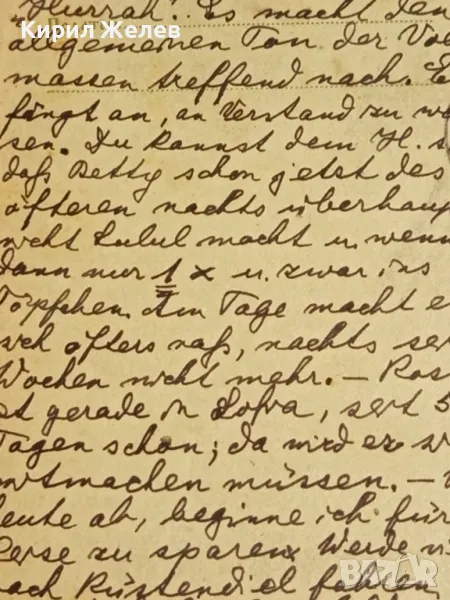 "Hurrah"! Es macht den
Кирил Желев
allgemeinen Ton der Vo
massen treffend nach. E
fängt an, an Verstand zu
sen. Du kannst dem H. s
daß Betty schon jetzt des
öfteren nachts überhaup
nicht Lulul macht u. wenn
dann nur 1 x u. zwar ins
Töpfchen. Am Tage macht e
sich öfters naß, nachts sei
Wochen nicht mehr. – Ros
ist gerade in Sofia, seit 5
Tagen schon; da wird er
mitmachen müssen. –
heute ab, beginne ich für
Reise zu sparen. Werde
nach Küstendil fahren
BAZAR